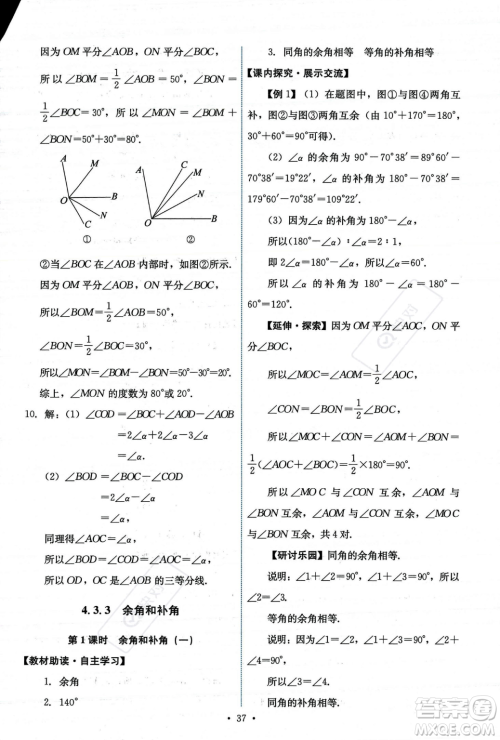 因为 OM 平分∠AOB, ON 平分∠BOC,
所以∠BOM=1/2∠AOB=50°, ∠BON=
1/2∠BOC=30°, 所以∠MON=∠BOM+
∠BON=50°+30°=80°.
A M B N C O ①
A C M N B O ②
②当∠BOC 在∠AOB 内部时, 如图②所示.
因为 OM 平分∠AOB, ON 平分∠BOC,
所以∠BOM=1/2∠AOB=50°,
∠BON=1/2∠BOC=30°.
所以∠MON=∠BOM-∠BON=20°.
综上, ∠MON 的度数为 80°或 20°.
10. 解: (1) ∠COD=∠AOD-∠AOB
=2∠α+∠α-∠α
=2∠α.
(2) ∠BOD=∠BOC-∠COD
=3∠α-2∠α
=∠α.
同理得∠AOC=∠α.
所以∠BOD=∠AOC=∠COD.
所以 OD, OC 是∠AOB 的三等分线.
4.3.3 余角和补角
第 1 课时 余角和补角 (一)
【教材助读·自主学习】
1. 余角
2. 140°
3. 同角的余角相等 等角的补角相等
【课内探究·展示交流】
【例 1】 (1) 在题图中, 图①与图④两角互
补, 图②与图③两角互余 (由 10°+170°=180°,
30°+60°=90°可得).
(2) ∠α 的余角为 90°-70°38′=89°60′-
70°38′=19°22′, ∠α 的补角为 180°-70°38′=
179°60′-70°38′=109°22′.
(3) 因为∠α 的补角为 180°-∠α,
所以 (180°-∠α) ∶∠α=2∶1,
即 2∠α=180°-∠α.
所以 3∠α=180°.
所以∠α=60°.
【延伸·探索】因为 OM 平分∠AOC, ON 平
分∠BOC,
所以∠AOM=∠COM=1/2∠AOC,
∠CON=∠BON=1/2∠BOC.
所以∠MOC+∠CON=1/2(∠AOC+∠BOC)=
1/2(∠AOB)=1/2×180°=90°.
所以∠MOC 与∠CON 互余, ∠MOC 与
∠BON 互余, ∠AOM 与∠CON 互余, ∠AOM
与∠BON 互余, 共 4 对.
【研讨乐园】 同角的余角相等.
说明: ∠1+∠2=90°, ∠1+∠3=90°,
所以∠2=∠3.
等角的余角相等.
说明: ∠1+∠2=90°, ∠3+∠4=90°,
∠1=∠3,
所以∠2=∠4.
同角的补角相等.
· 37 ·
答案圈